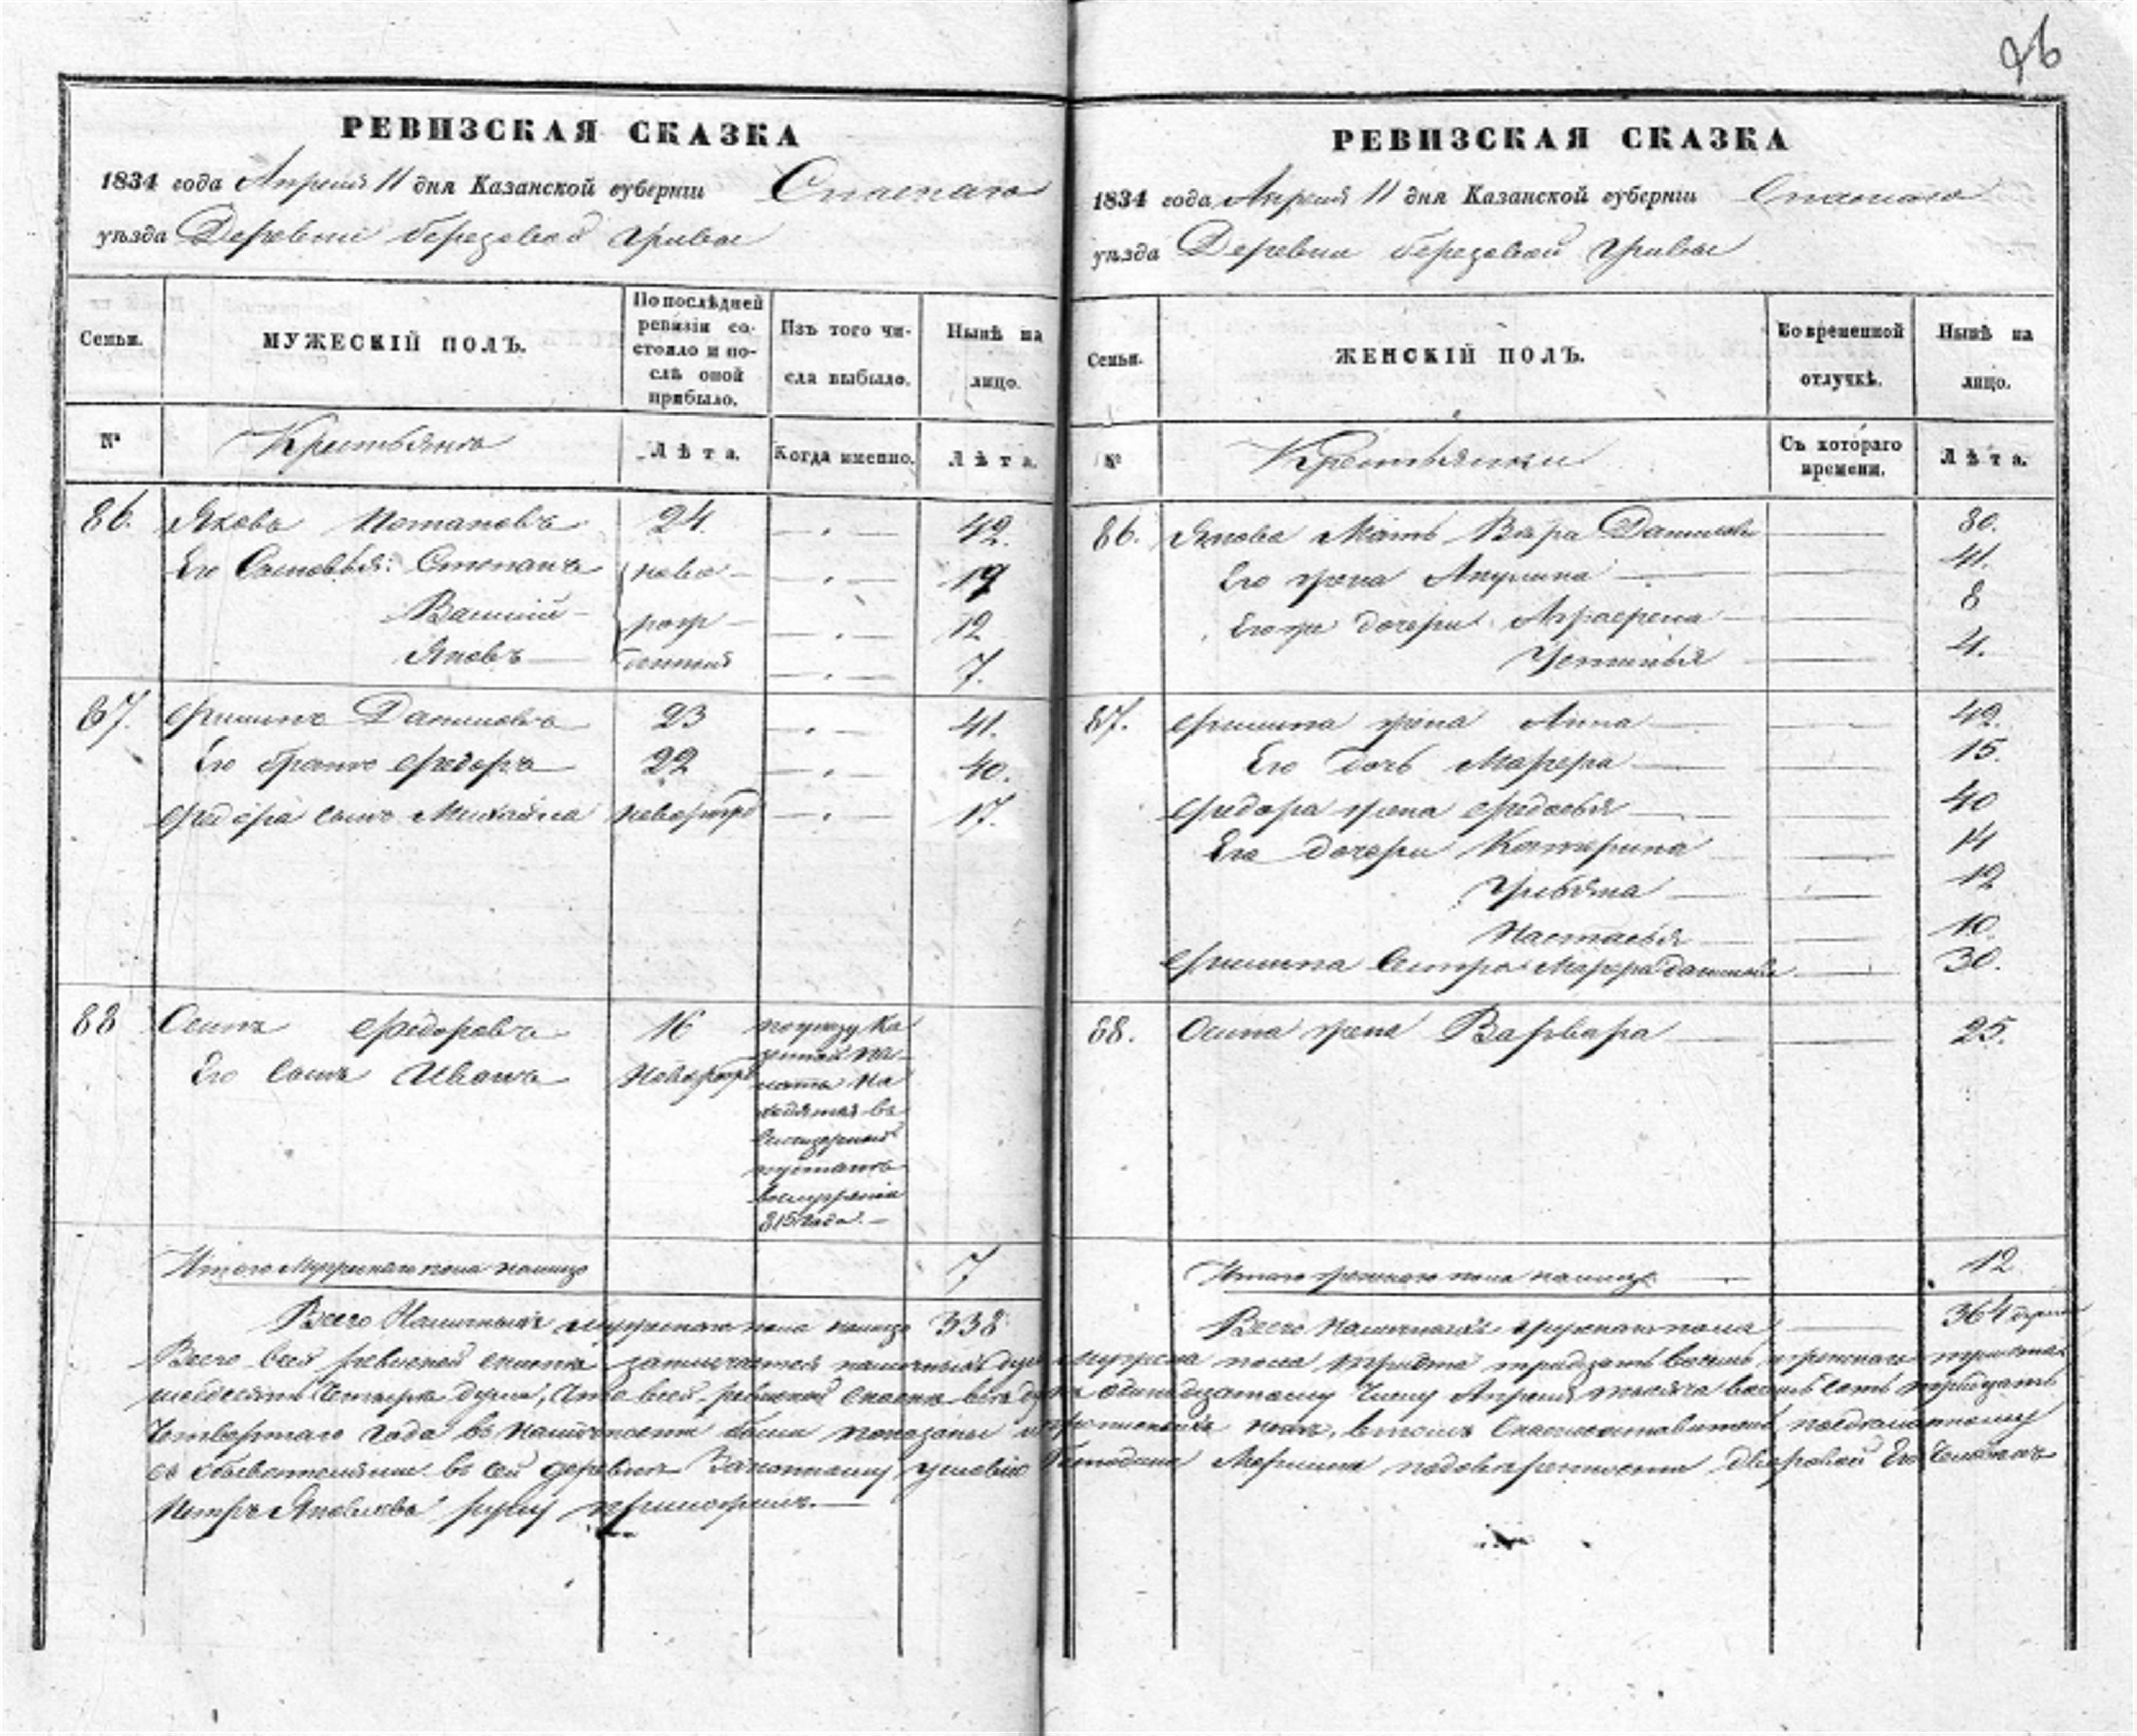 96
РЕВИЗСКАЯ СКАЗКА
1834 года Апреля 11 дня Казанской губернiи Спаскаго
уѣзда Деревни березовой гривы
Семьи.
МУЖЕСКIЙ ПОЛЪ.
По послѣдней ревизiи состояло и послѣ оной прибыло.
Изъ того числа выбыло.
Нынѣ на лицо.
№
Крестьянъ
Лѣта.
Когда именно.
Лѣта.
86. Яковъ Потаповъ 24. 42.
Его Сыновья: Степанъ ново 19
Василий рож 12
Яковъ денныя 7.
87. Филипъ Даниловъ 23 41.
Его братъ Федоръ 22 40.
Федора сынъ Михайла новорожд 17.
88 Осипъ Федоровъ 16
Его Сынъ Иванъ Новорожд
по указу Ка
зенной па
латы На
ходятся въ
815 года.
Итого Мужескаго пола налицо 7
Всего Наличныхъ мужескаго пола налицо 338
РЕВИЗСКАЯ СКАЗКА
1834 года Апреля 11 дня Казанской губернiи Спаскаго
уѣзда Деревни березовой гривы
Семьи.
ЖЕНСКIЙ ПОЛЪ.
Во временной отлучкѣ.
Нынѣ на лицо.
№
Крестьянки
Съ котораго времени.
Лѣта.
86. Якова Мать Вера Данилова 80.
Его жена Акулина 41.
Его же дочери Аграфена 8
Устинья 4.
87. Филипа жена Анна 42.
Его дочь Марфа 15.
Федора жена Федосья 40
Его дочери Катерина 14
Улита 12
Настасья 10.
Филипа Сестра Марфа Данилова 30.
88. Осипа жена Варвара 25.
Итого женскаго пола налицо 12
Всего наличныхъ женскаго пола 364 души
Всего всей ревиской скаски заключается наличныхъ душъ мужеска пола триста тридцать восемь женскаго триста
шездесятъ четыре души, одинадцатому числу Апреля тысяча восемь сотъ тридцать
Четвертаго года въ наличности были показаны
въ сей деревне Господина
Петръ Яковлевъ руку приложилъ.